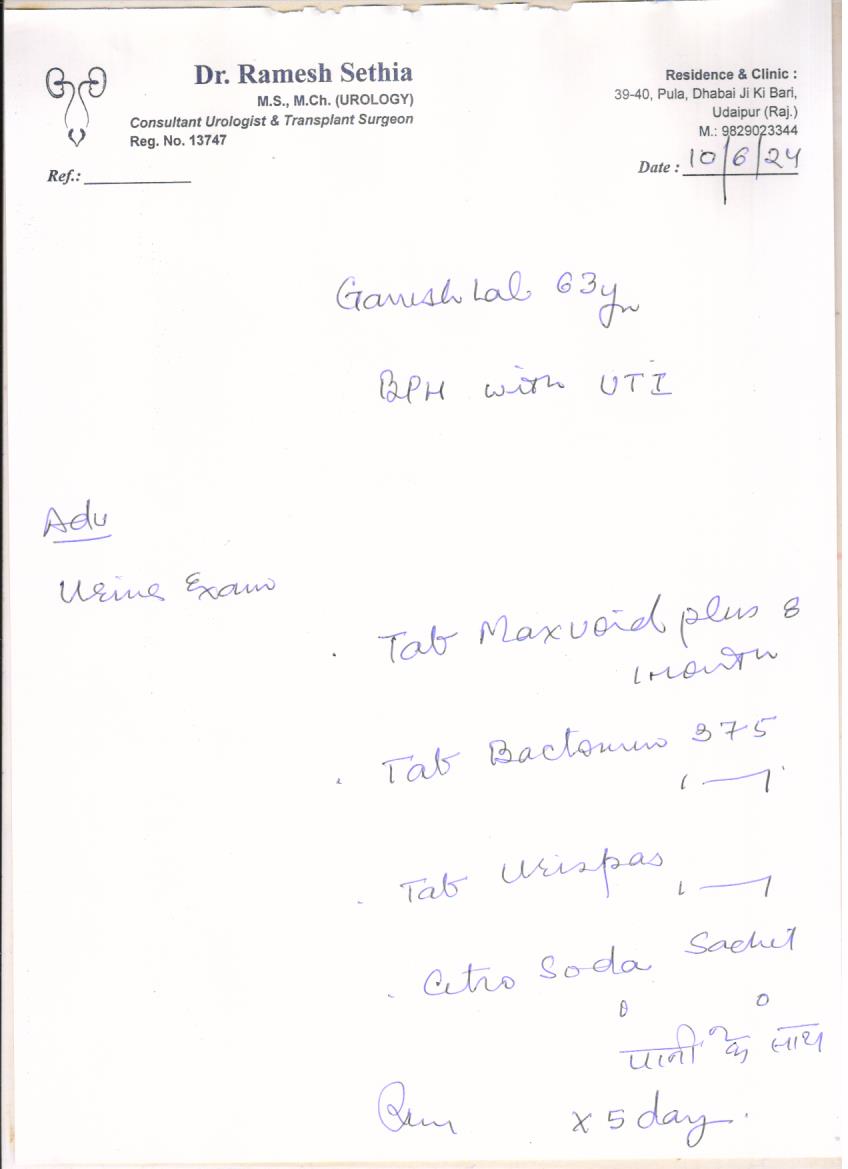 Dr. Ramesh Sethia
M.S., M.Ch. (UROLOGY)
Consultant Urologist & Transplant Surgeon
Reg. No. 13747
Ref.:
Residence & Clinic :
39-40, Pula, Dhabai Ji Ki Bari,
Udaipur (Raj.)
M.: 9829023344
Date : 10/6/24
Ganesh Lal 63yr
BPH with UTI
Adv
Urine Exam
Tab Maxvoid plus 8
1 month
Tab 375
1 — 1
Tab Urispas
1 — 1
Citro Soda Sachet
पानी के साथ
x 5 day.